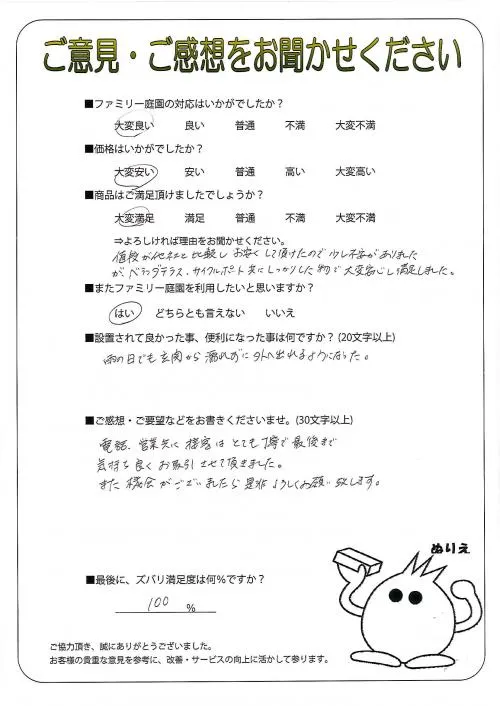 ご意見・ご感想をお聞かせください
■ファミリー庭園の対応はいかがでしたか？
大変良い 良い 普通 不満 大変不満
■価格はいかがでしたか？
大変安い 安い 普通 高い 大変高い
■商品はご満足頂けましたでしょうか？
大変満足 満足 普通 不満 大変不満
⇒よろしければ理由をお聞かせください。
値段が他社と比較しお安くして頂けたので少し不安がありました
が、ベランダテラス、サイクルポート共にしっかりした物で大変安心し満足しました。
■またファミリー庭園を利用したいと思いますか？
はい どちらとも言えない いいえ
■設置されて良かった事、便利になった事は何ですか？(20文字以上)
雨の日でも玄関から濡れずに外へ出れるようになった。
■ご感想・ご要望などをお書きくださいませ。(30文字以上)
電話、営業共に接客はとても丁寧で最後まで
気持ち良くお取引させて頂きました。
また機会がございましたら是非よろしくお願い致します。
ぬりえ
■最後に、ズバリ満足度は何％ですか？
100 ％
ご協力頂き、誠にありがとうございました。
お客様の貴重な意見を参考に、改善・サービスの向上に活かして参ります。